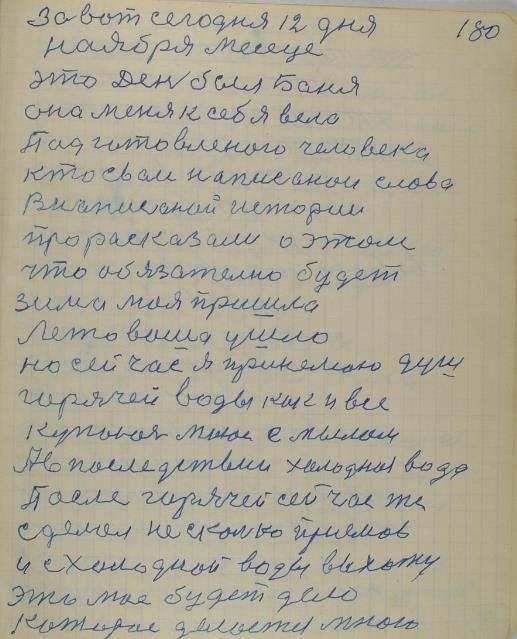 За вот сегодня 12 дня
180
наября месеце
это Ден был Баня
она меня к себя вела
Подготовленого человека
кто свои написаной слова
В написаной истории
про расказали о этом
что обязателно будет
зима моя пришла
Лето ваша ушло
но сей час я принемаю душ
горячей воды как и все
куповоя мною с мылом
А в последствии холодная вода
После горячей сей час же
сделал несколко приемов
и с холодной воды выхожу
это мое будет дело
каторое делоется много